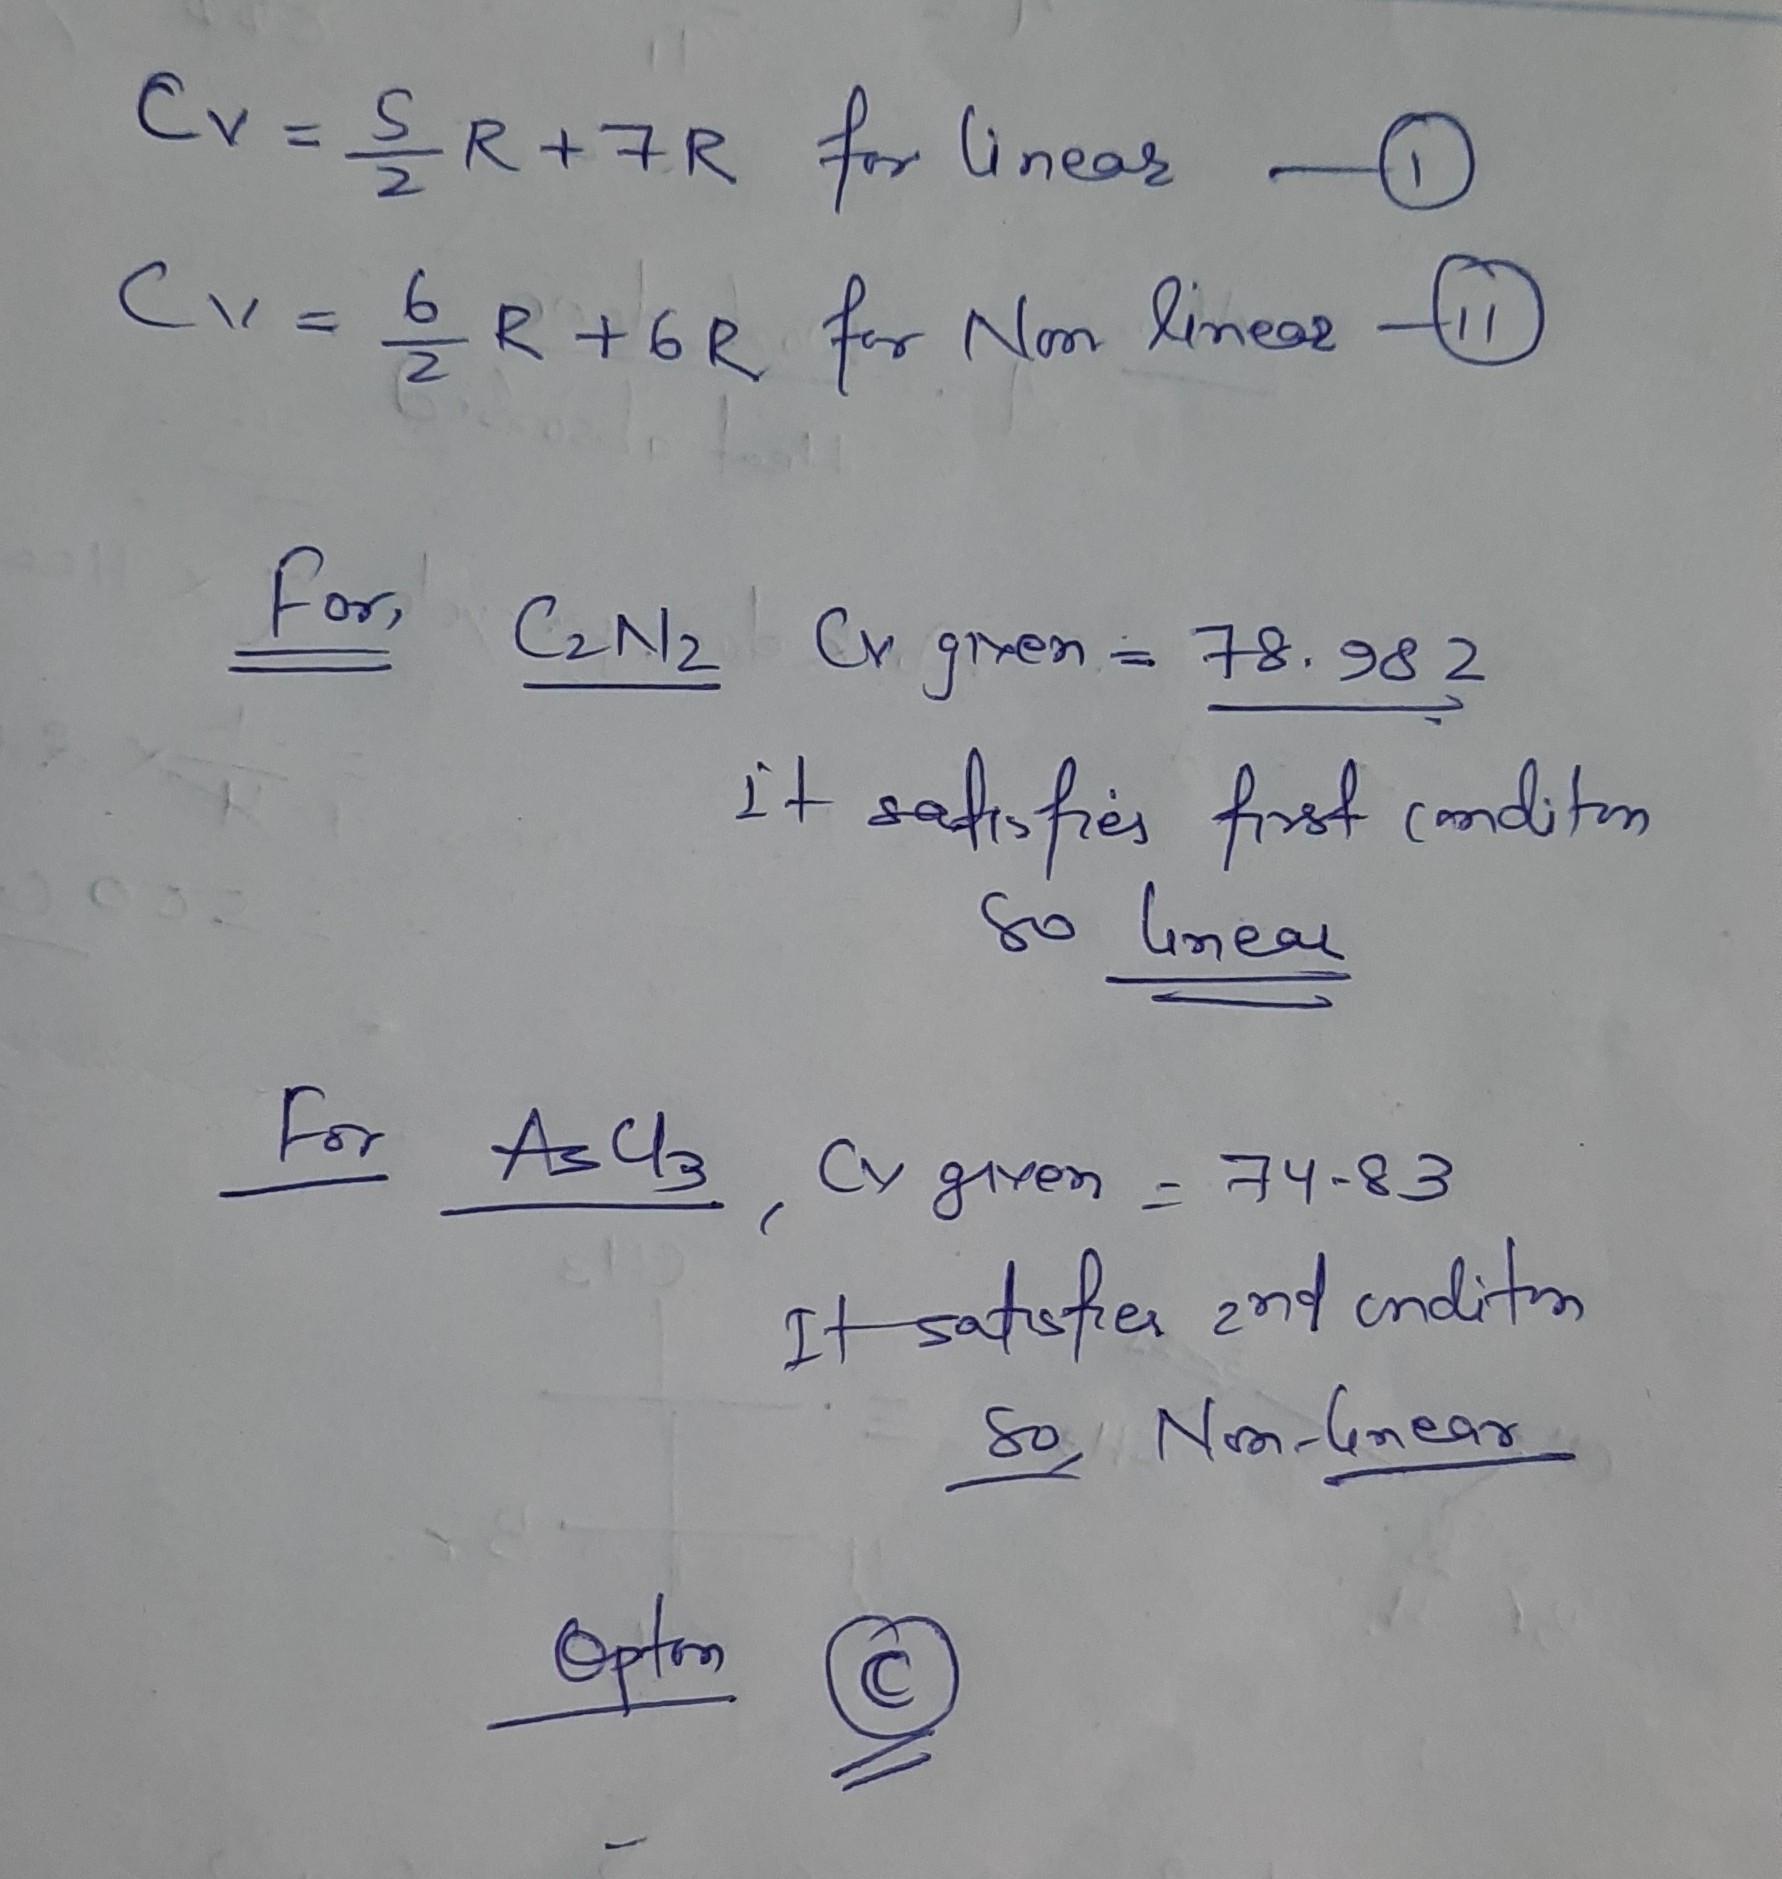 Cv = 5/2 R + 7R for linear — (I)
Cv = 6/2 R + 6R for Non linear — (II)
For, C2N2 Cv given = 78.982
it satisfies first conditon
so linear
For AsCl3, Cv given = 74.83
It satisfies 2nd conditon
so, Non-linear
Opton (C)